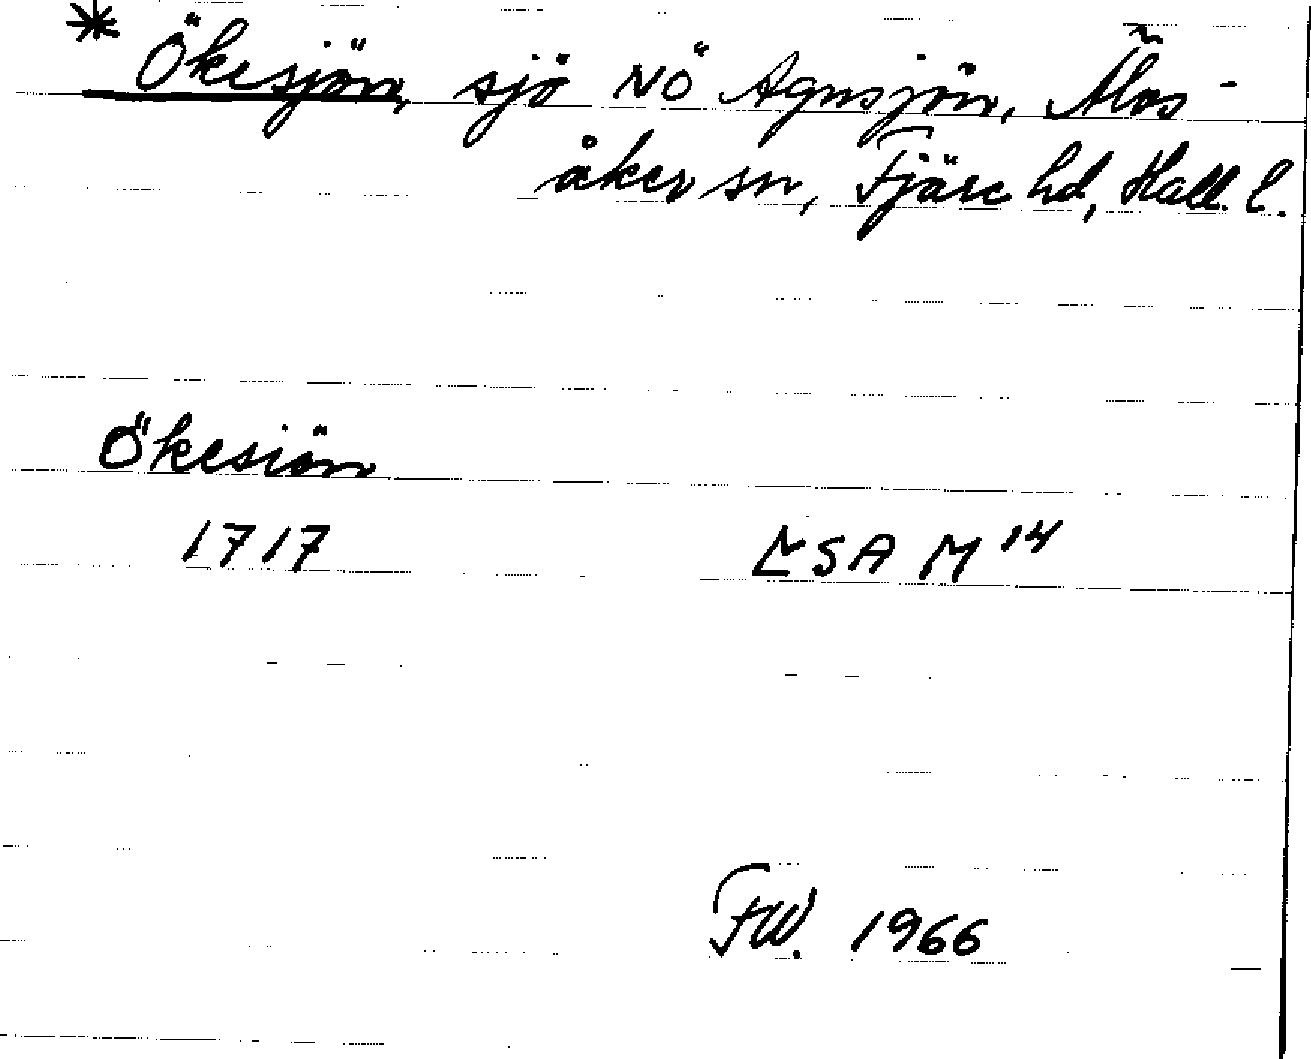 * Ökesjön, sjö NÖ Agnsjön, Älvs-
åkers sn, Fjäre hd, Hall. l.
Ökesiön
1717 LSA M 14
FW. 1966